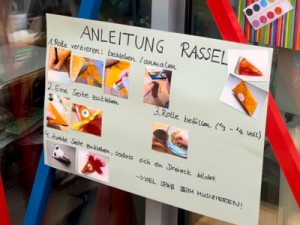 ANLEITUNG RASSEL
1. Rolle verzieren: bekleben / anmalen
2. Eine Seite zukleben
3. Rolle befüllen (1/3 - 1/2 voll)
4. zweite Seite zukleben, sodass sich ein Dreieck bildet
→ VIEL SPAß BEIM MUSIZIEREN!